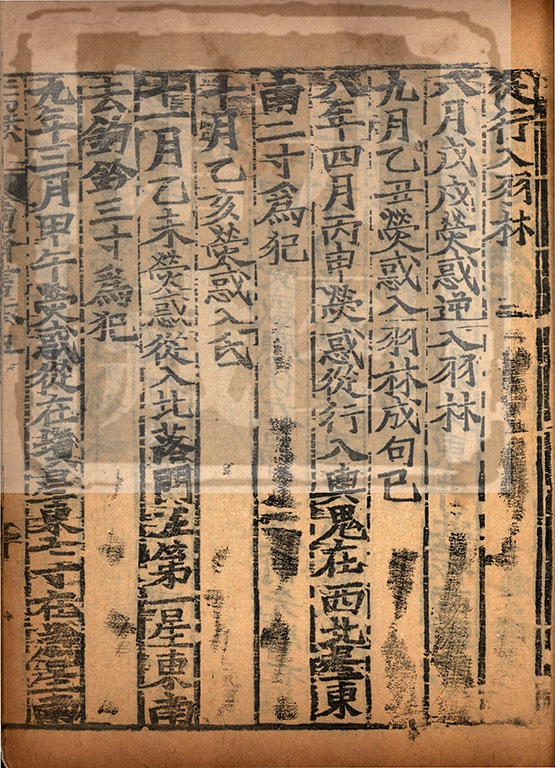 從行入羽林
八月戊戌熒惑逆入羽林
九月乙丑熒惑入羽林成句巳
八年四月丙申熒惑從行入輿鬼在西北星東
南二寸爲犯
十月乙亥熒惑入氐
十一月乙未熒惑從入北落門在第一星東南
去鉤鈐三寸爲犯
九年三月甲午熒惑從在填星東七寸在星南